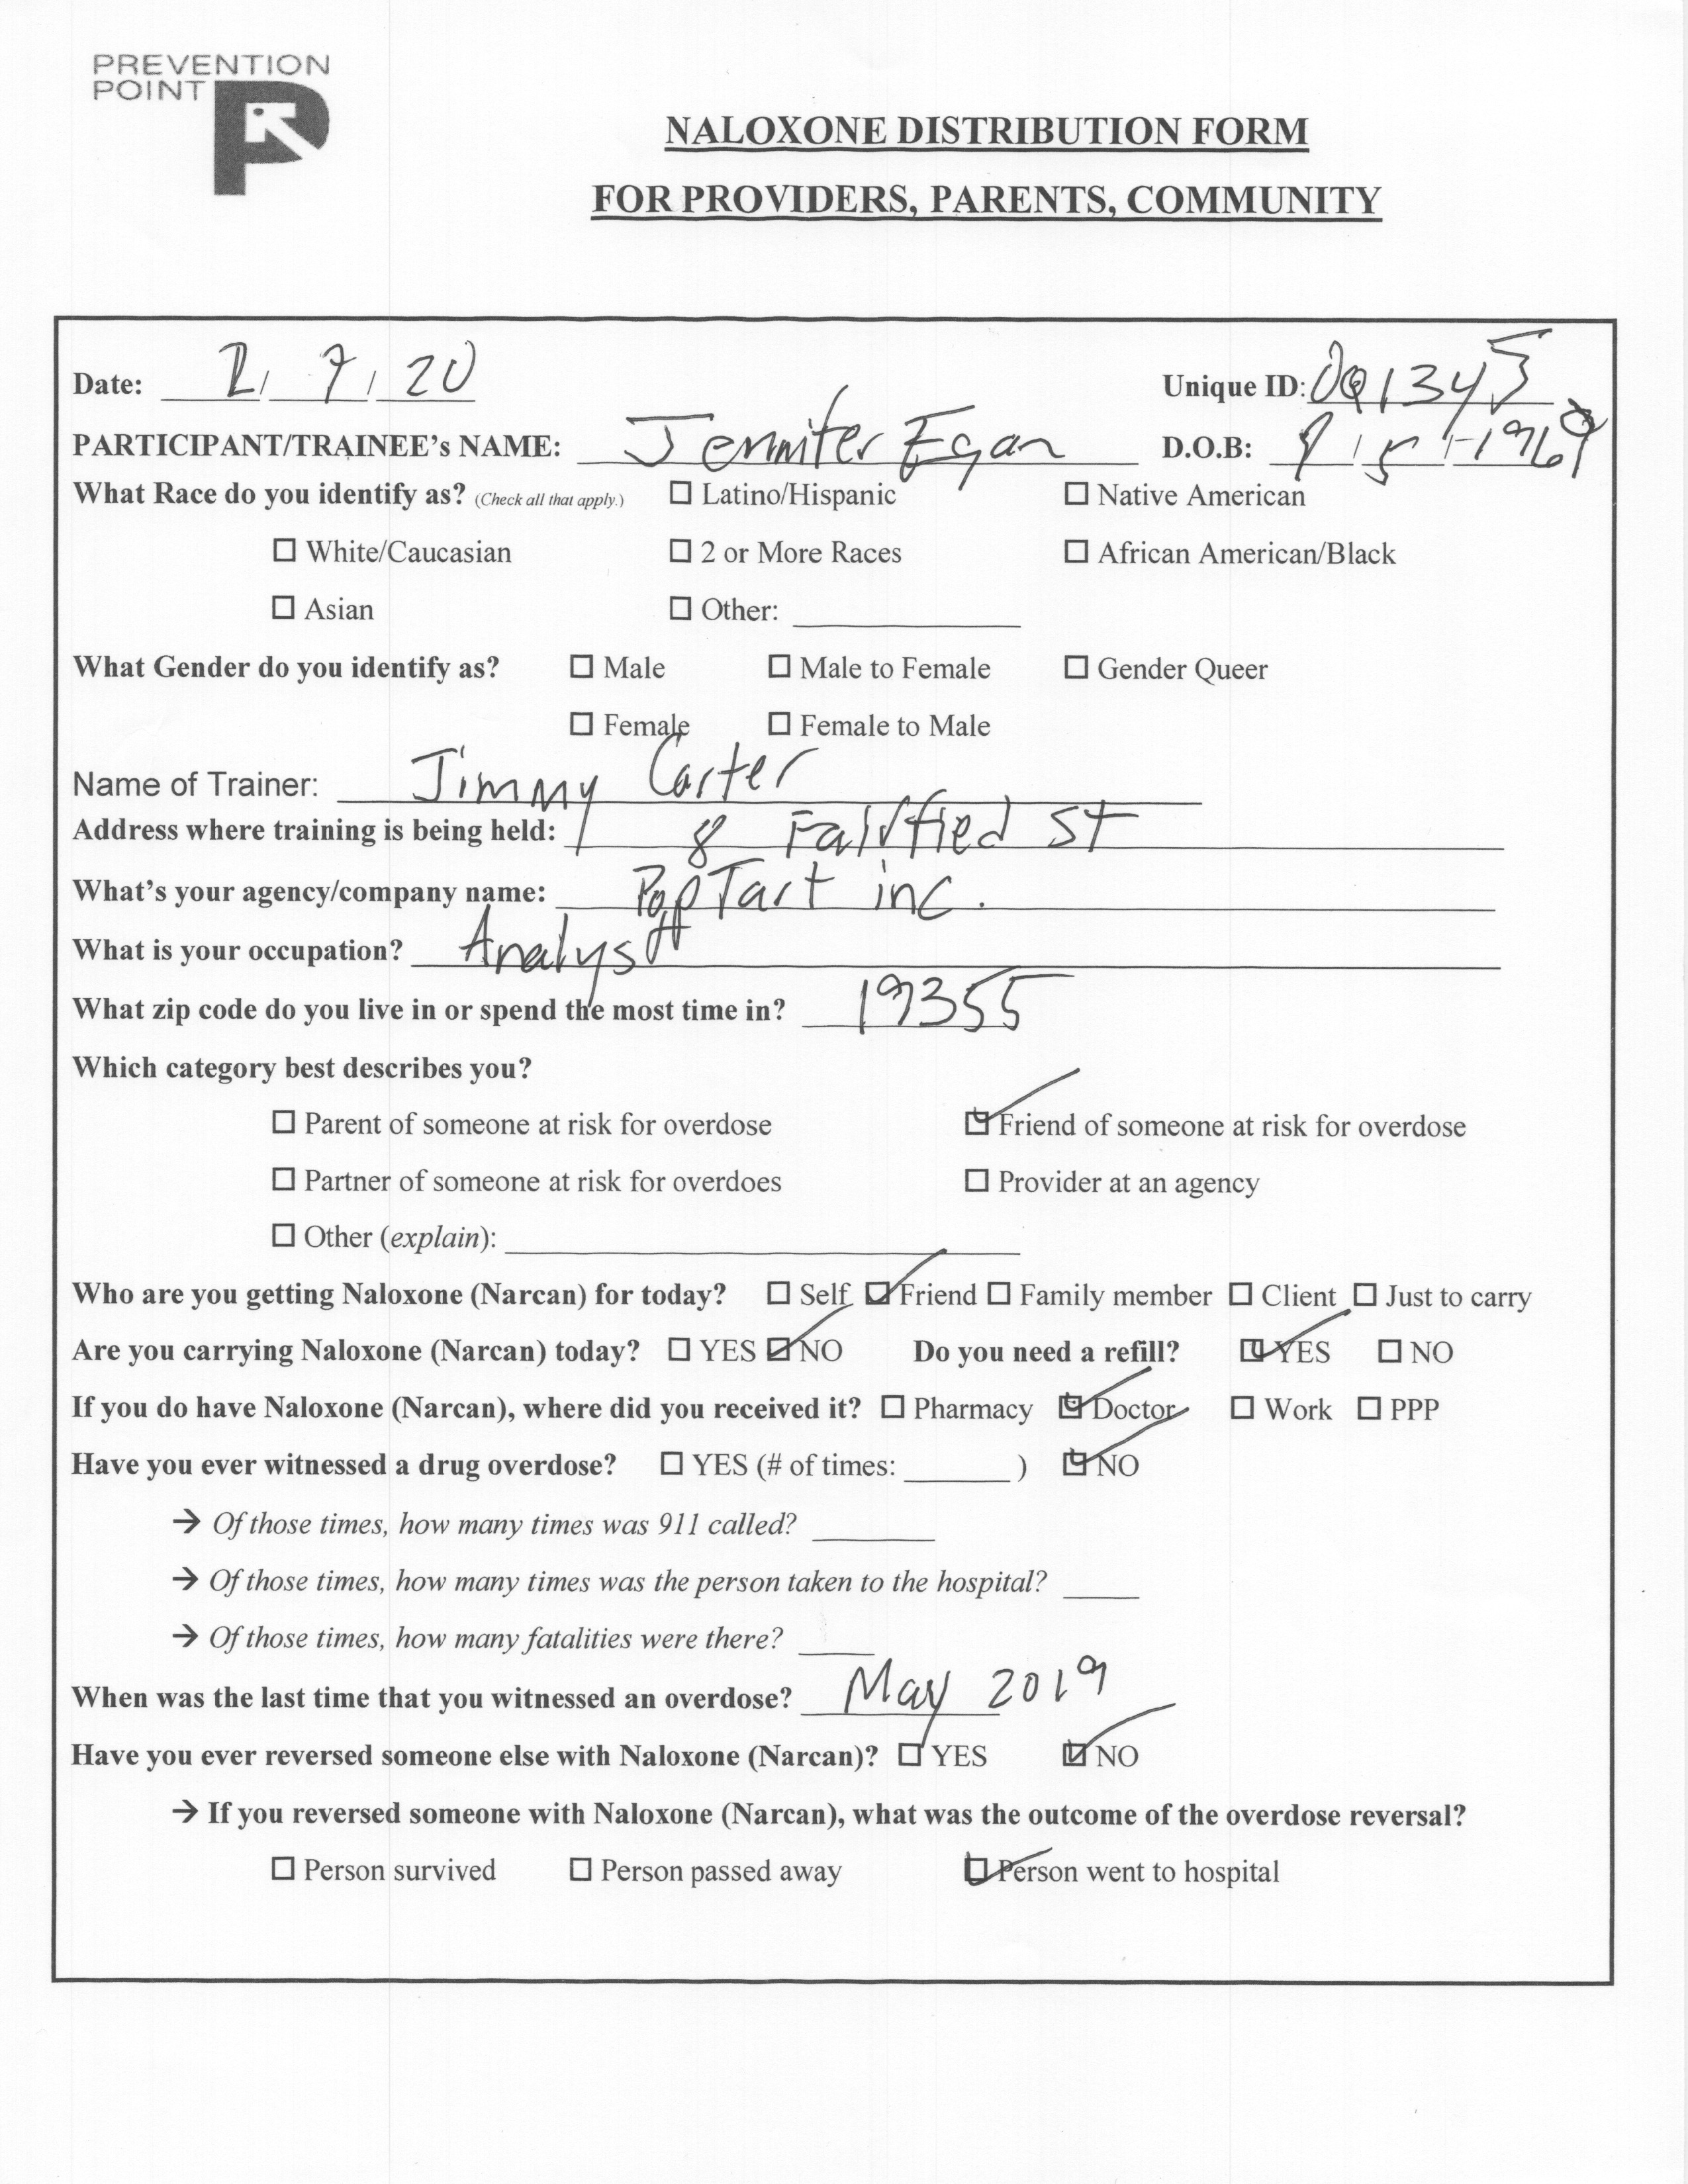 PREVENTION
POINT
NALOXONE DISTRIBUTION FORM
FOR PROVIDERS, PARENTS, COMMUNITY
Date: / 7 / 20 Unique ID: 1345
PARTICIPANT/TRAINEE's NAME: Jennifer Egan D.O.B: / 5 / 1969
What Race do you identify as? (Check all that apply.) ☐ Latino/Hispanic ☐ Native American
☐ White/Caucasian ☐ 2 or More Races ☐ African American/Black
☐ Asian ☐ Other: ____
What Gender do you identify as? ☐ Male ☐ Male to Female ☐ Gender Queer
☐ Female ☐ Female to Male
Name of Trainer: Jimmy Carter
Address where training is being held: 8 Fairfied St
What's your agency/company name: PopTart inc.
What is your occupation? Analyst
What zip code do you live in or spend the most time in? 19355
Which category best describes you?
☐ Parent of someone at risk for overdose ☑ Friend of someone at risk for overdose
☐ Partner of someone at risk for overdoes ☐ Provider at an agency
☐ Other (explain): ____
Who are you getting Naloxone (Narcan) for today? ☐ Self ☑ Friend ☐ Family member ☐ Client ☐ Just to carry
Are you carrying Naloxone (Narcan) today? ☐ YES ☑ NO Do you need a refill? ☑ YES ☐ NO
If you do have Naloxone (Narcan), where did you received it? ☐ Pharmacy ☑ Doctor ☐ Work ☐ PPP
Have you ever witnessed a drug overdose? ☐ YES (# of times: ____ ) ☑ NO
→ Of those times, how many times was 911 called? ____
→ Of those times, how many times was the person taken to the hospital? ____
→ Of those times, how many fatalities were there? ____
When was the last time that you witnessed an overdose? May 2019
Have you ever reversed someone else with Naloxone (Narcan)? ☐ YES ☑ NO
→ If you reversed someone with Naloxone (Narcan), what was the outcome of the overdose reversal?
☐ Person survived ☐ Person passed away ☑ Person went to hospital